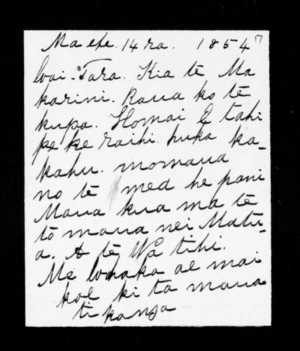 Maehe. 14 ra. 1854
Wai-Tara. Kia te Ma
karini. Raua ko te
kupa. Homai e tahi
pe ke raihi huka ka-
kahu. momaua
no te med he pani
Maua kua ma te
to maua nei Matu-
a. A te Wa tihi.
Me whaka ae mai
koe ki ta maua
tikanga